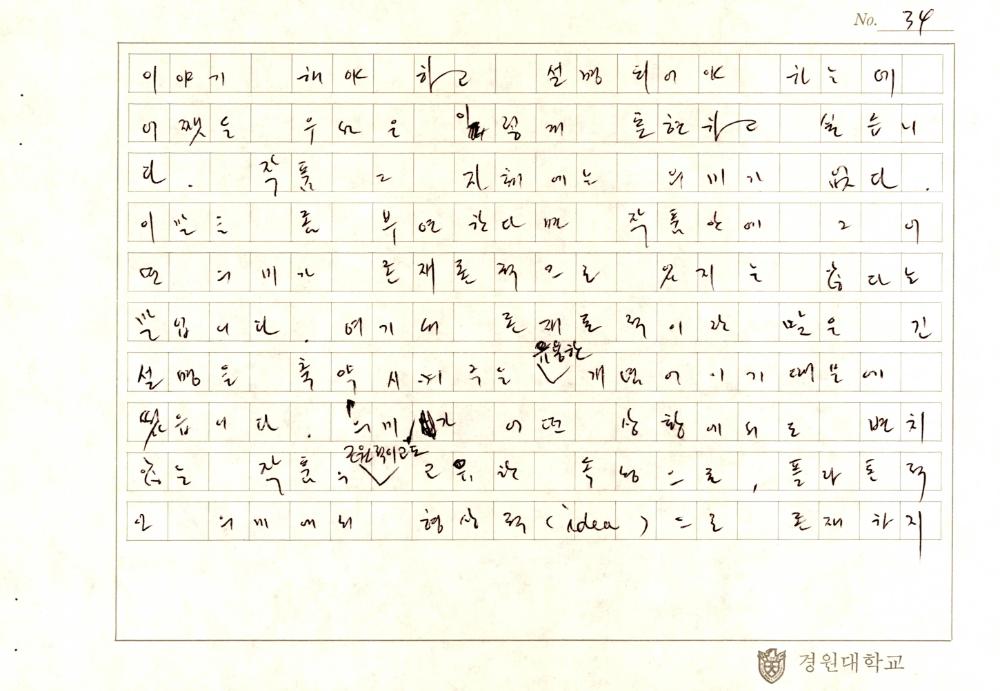 No. 34
이야기 해야 하고 설명 되어야 하는데
어쨌든 우선은 이렇게 표현하고 싶습니
다. 작품 그 자체에는 의미가 없다.
이 말을 좀 부연한다면 작품안에 그 어
떤 의미가 존재론적으로 있지는 않다는
말입니다. 여기서 존재론적이란 말은 긴
설명을 축약시켜주는 유용한 개념어이기 때문에
썼읍니다. '의미'가 어떤 상황에서도 변치
않는 작품의 근원적이고도 고유한 속성으로, 플라톤적
인 의미에서의 형상적(idea)으로 존재하지
경원대학교